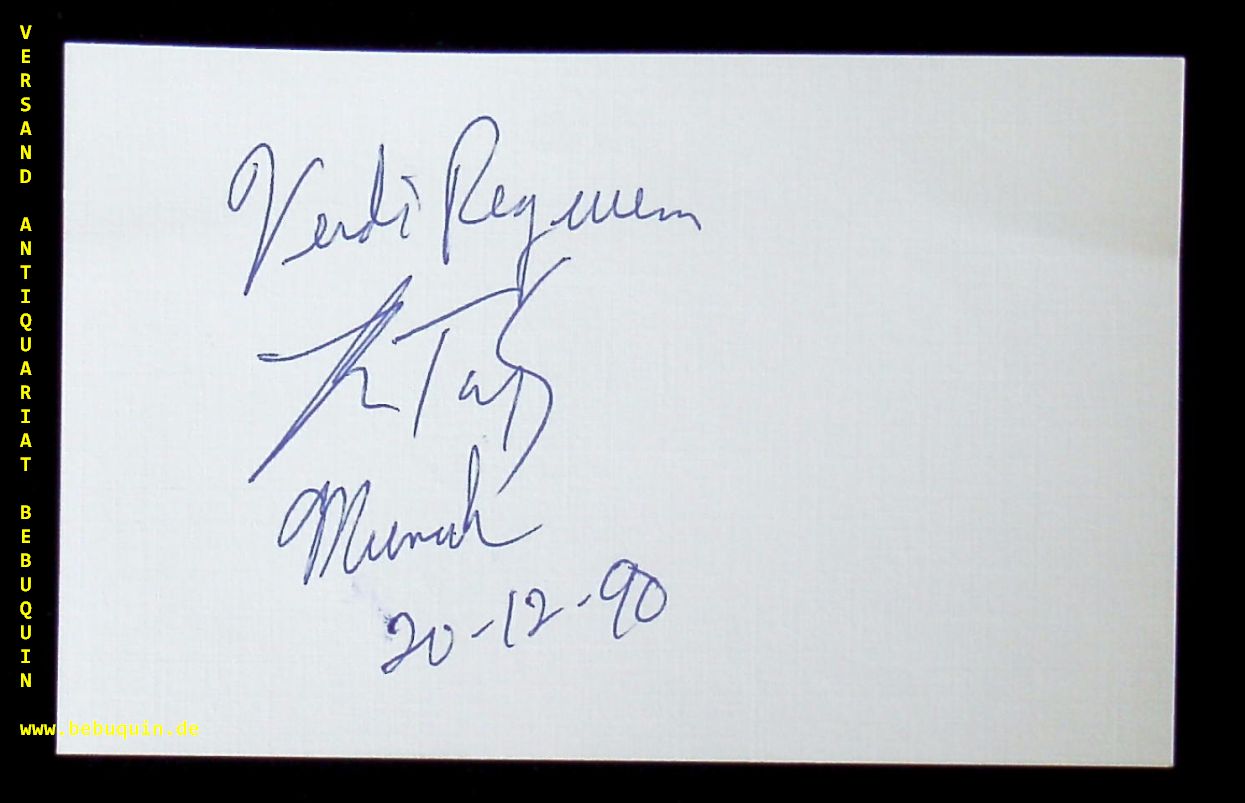 VERSAND ANTIQUARIAT BEBUQUIN
Verdi Requiem
Munich
20-12-90
www.bebuquin.de